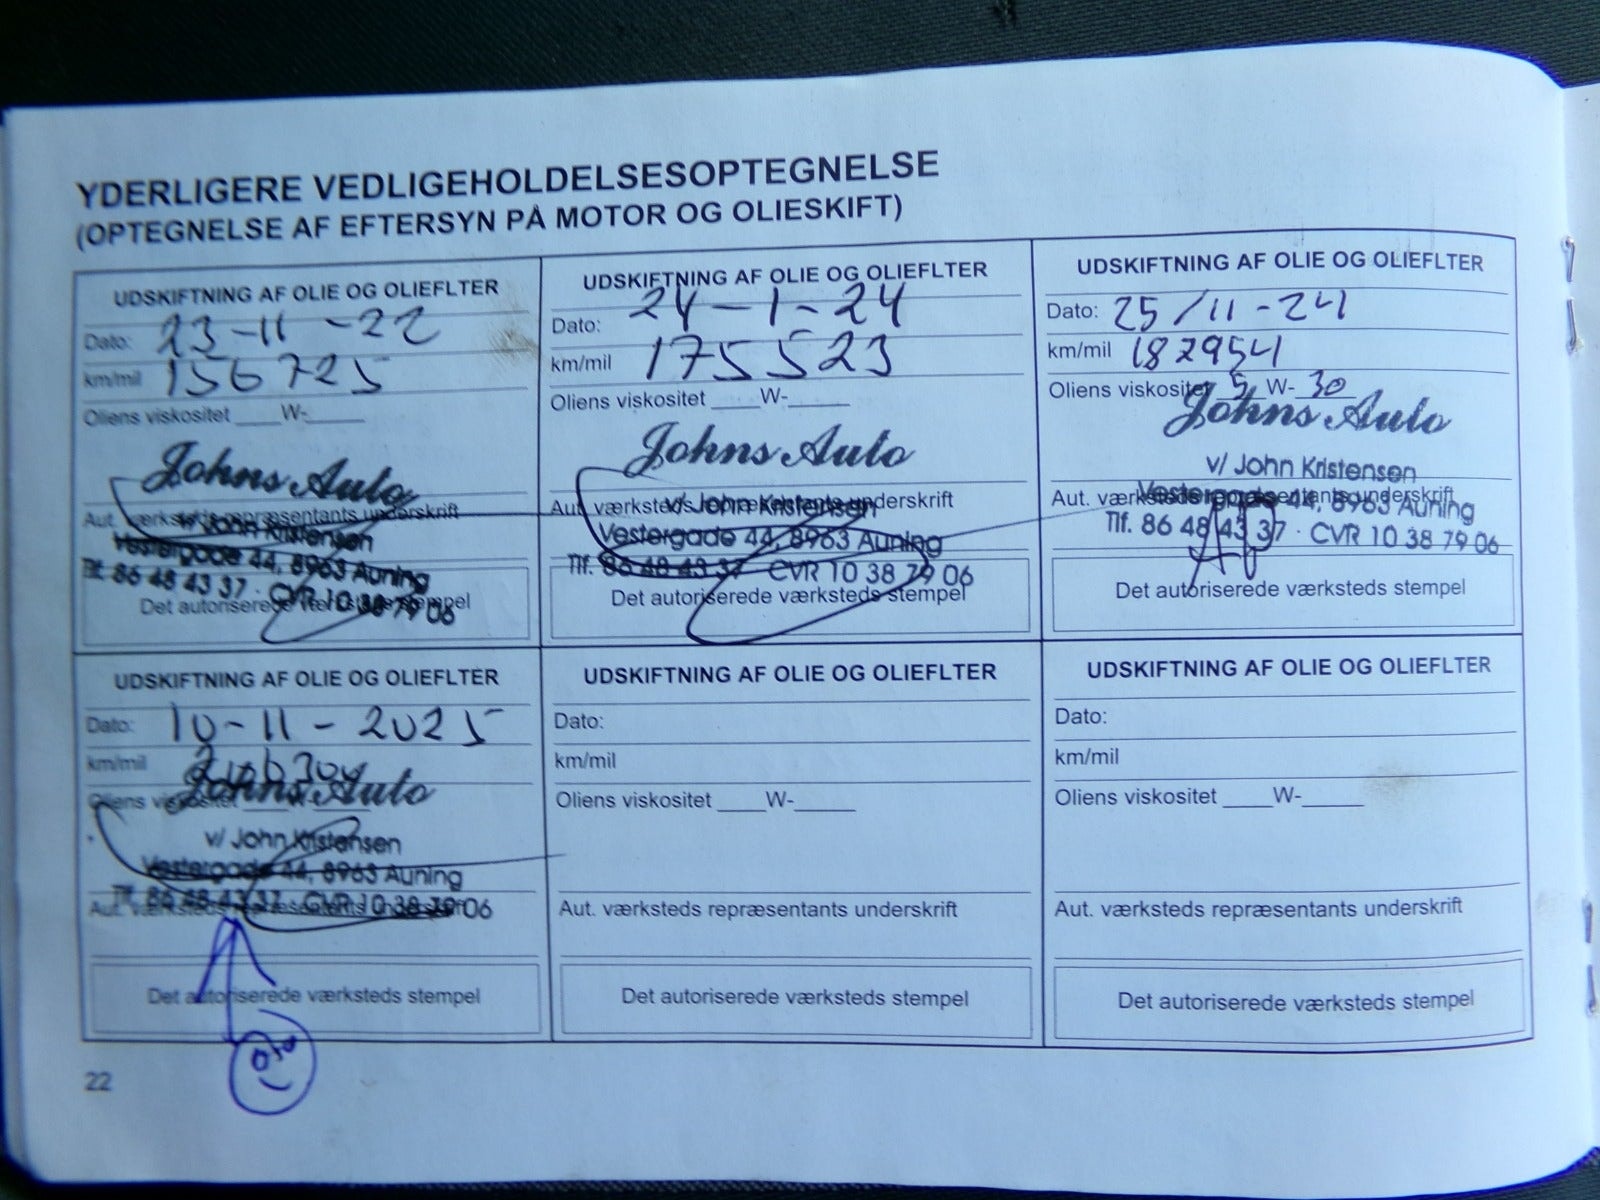 YDERLIGERE VEDLIGEHOLDELSESOPTEGNELSE
(OPTEGNELSE AF EFTERSYN PÅ MOTOR OG OLIESKIFT)
UDSKIFTNING AF OLIE OG OLIEFLTER
Dato: 23-11-22
km/mil 156725
Oliens viskositet ____W-____
Johns Auto
Aut. værksteds repræsentants underskrift
v/ John Kristensen
Vestergade 44, 8963 Auning
Tlf. 86 48 43 37 · CVR 10 38 79 06
Det autoriserede værksteds stempel
UDSKIFTNING AF OLIE OG OLIEFLTER
Dato: 24-1-24
km/mil 175523
Oliens viskositet ____W-____
Johns Auto
Aut. værksteds repræsentants underskrift
v/ John Kristensen
Vestergade 44, 8963 Auning
Tlf. 86 48 43 37 · CVR 10 38 79 06
Det autoriserede værksteds stempel
UDSKIFTNING AF OLIE OG OLIEFLTER
Dato: 25/11-24
km/mil 182954
Oliens viskositet 5 W- 30
Johns Auto
v/ John Kristensen
Aut. værksteds repræsentants underskrift
Vestergade 44, 8963 Auning
Tlf. 86 48 43 37 · CVR 10 38 79 06
Det autoriserede værksteds stempel
UDSKIFTNING AF OLIE OG OLIEFLTER
Dato: 10-11-2025
km/mil
Johns Auto
Oliens viskositet
v/ John Kristensen
Vestergade 44, 8963 Auning
Tlf. 86 48 43 37 · CVR 10 38 79 06
Aut. værksteds repræsentants underskrift
Det autoriserede værksteds stempel
UDSKIFTNING AF OLIE OG OLIEFLTER
Dato:
km/mil
Oliens viskositet ____W-_____
Aut. værksteds repræsentants underskrift
Det autoriserede værksteds stempel
UDSKIFTNING AF OLIE OG OLIEFLTER
Dato:
km/mil
Oliens viskositet ____W-_____
Aut. værksteds repræsentants underskrift
Det autoriserede værksteds stempel
22